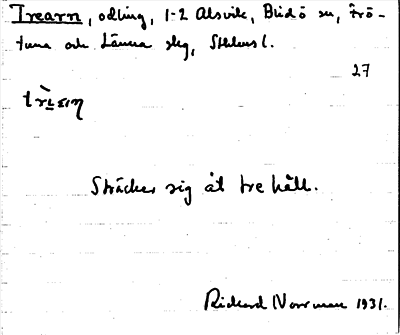 Trearn, odling, 1-2 Alsvik, Blidö sn, Frö-
tuna och Länna slg, Sthlms l.
27
Sträcker sig åt tre håll.
Rickard Norrman 1931.